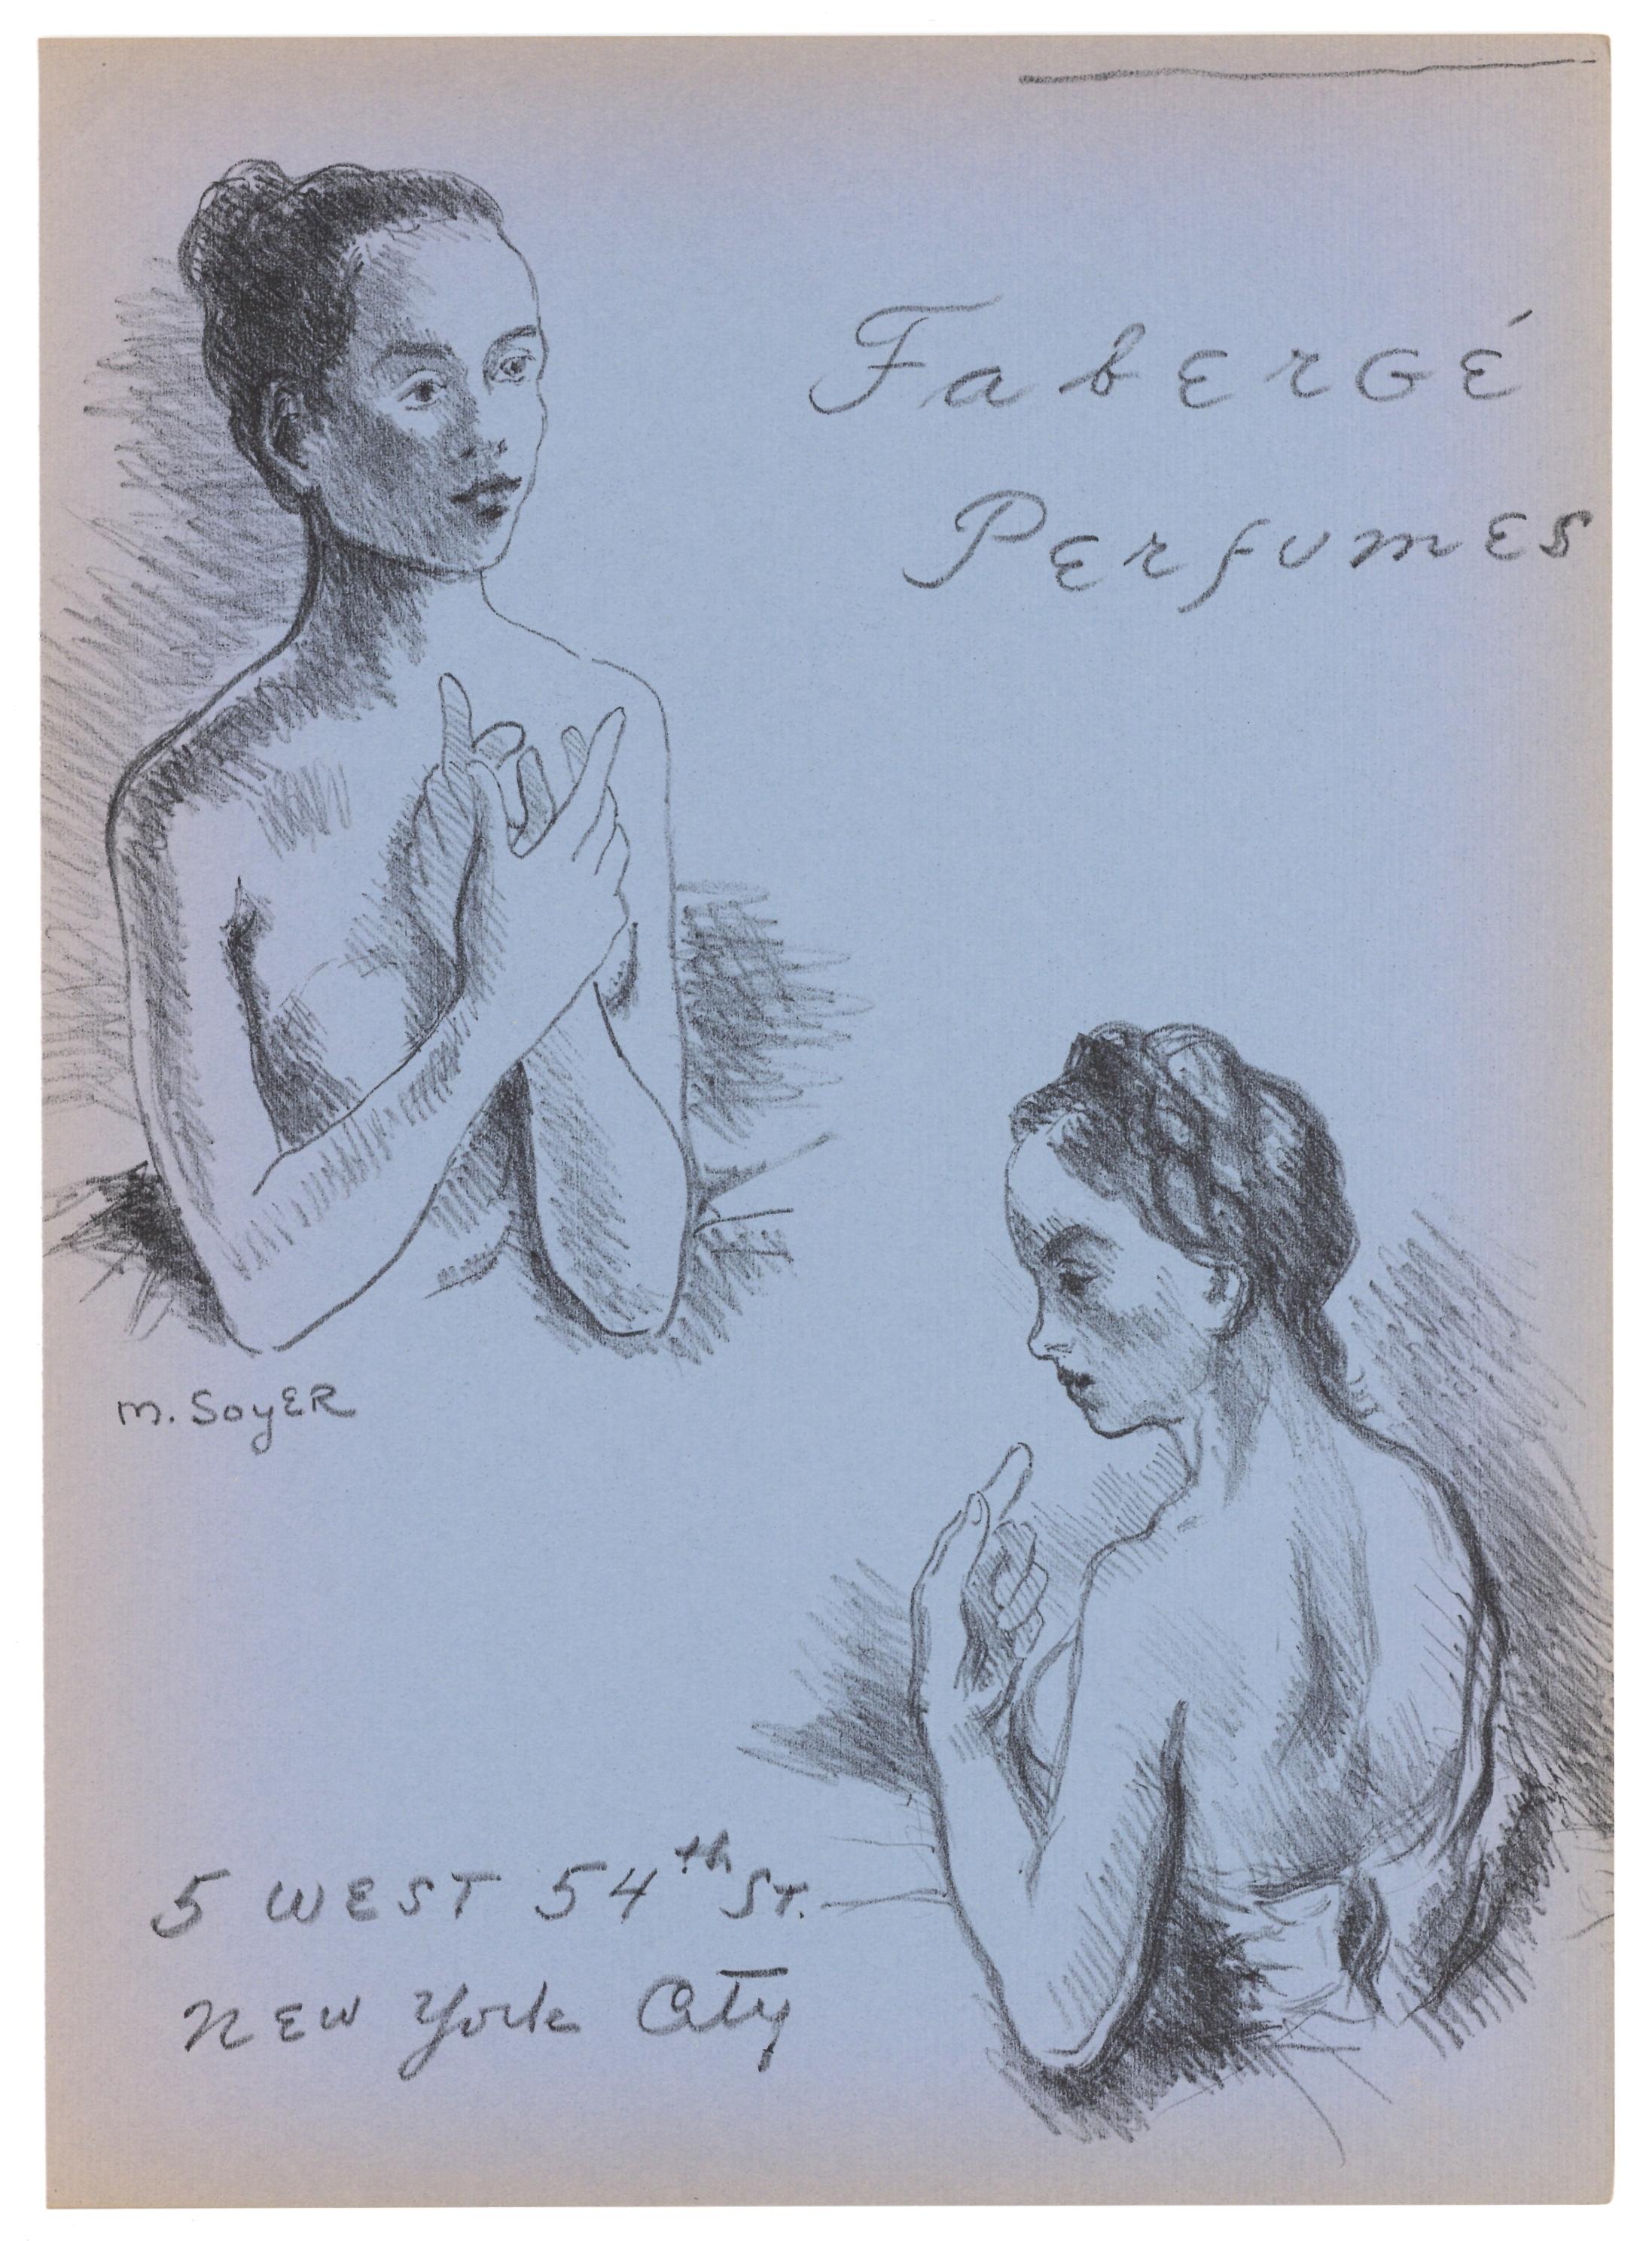 FabErGÉ
PErfumES
M. SoyER
5 WEST 54th ST.
NEW York City